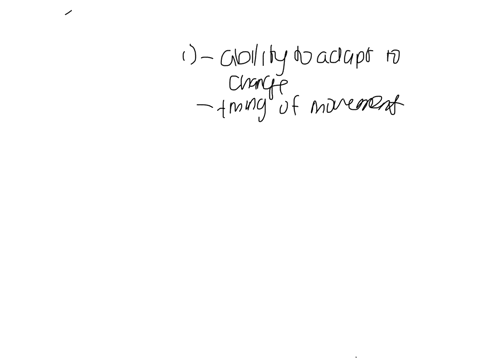 1) - ability to adapt to
change
- timing of movement